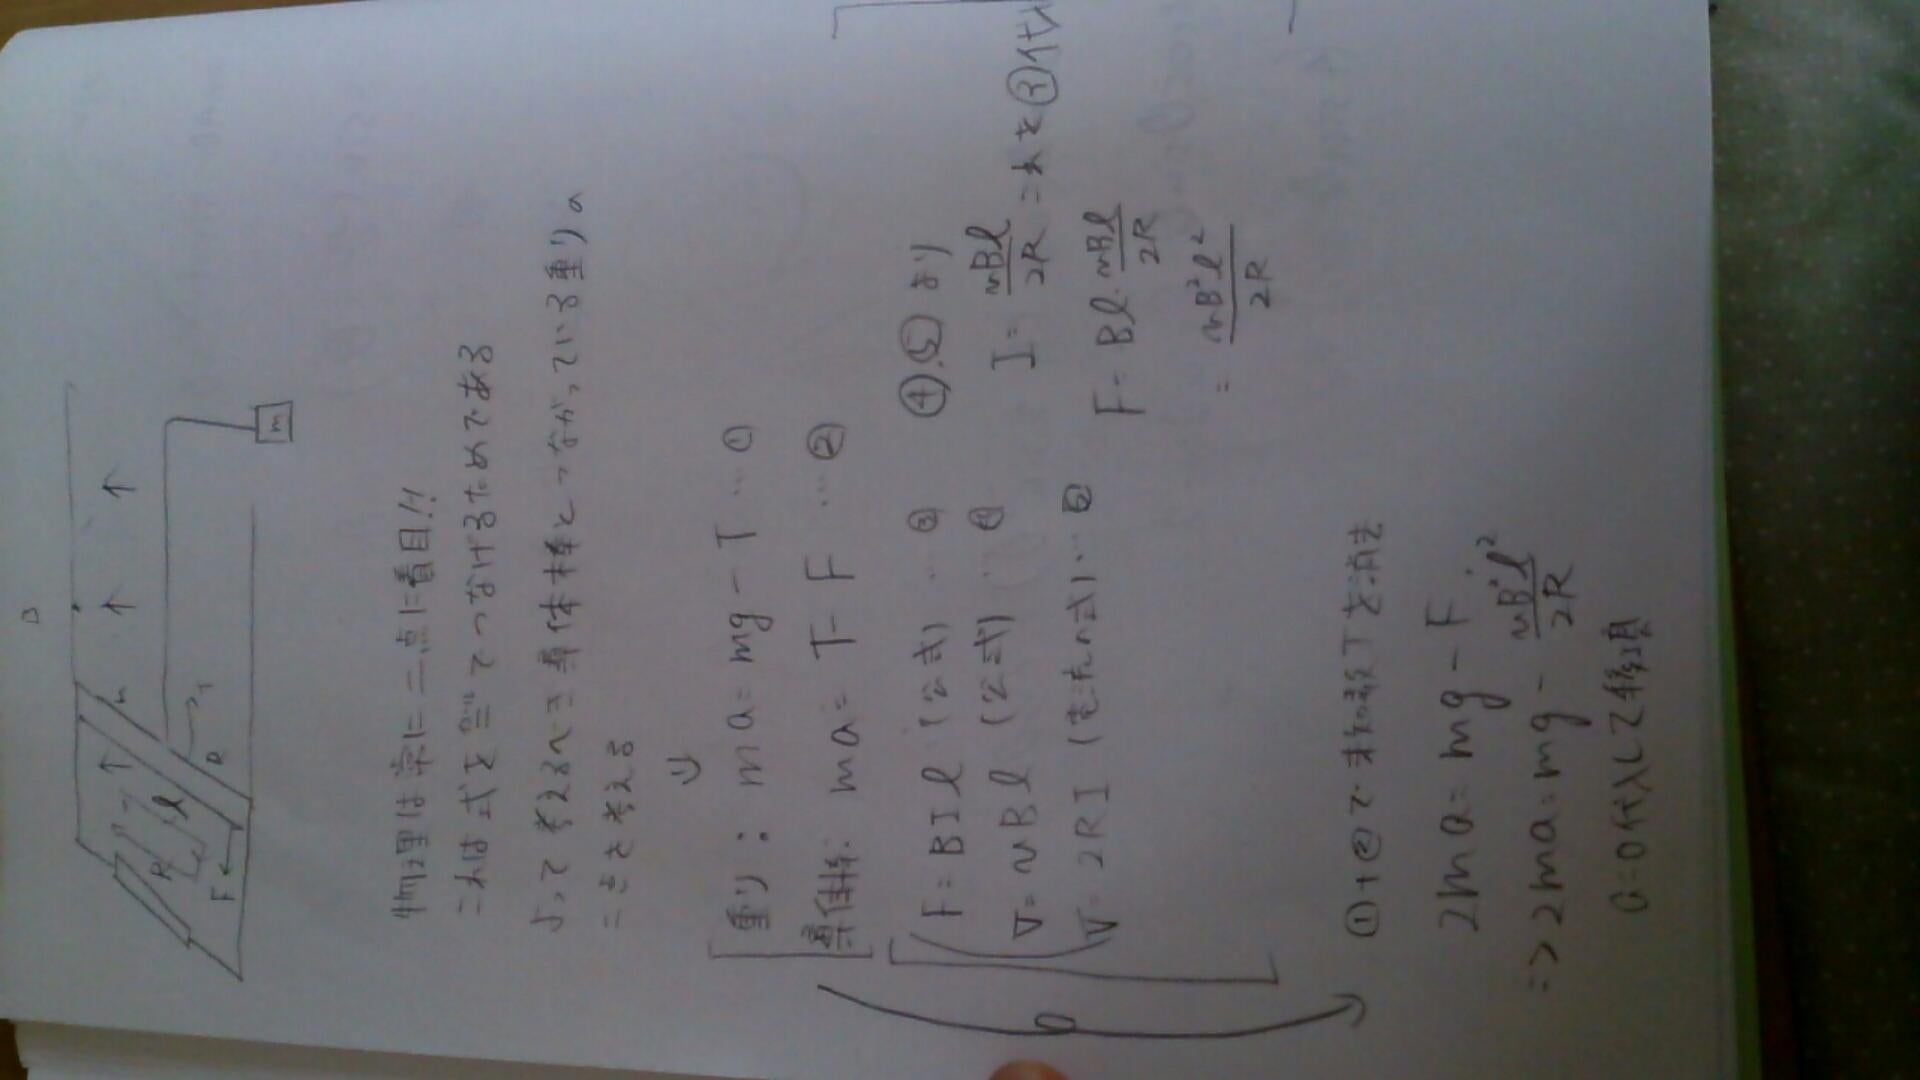 B
m
R
l
F
R
T
物理は常に二点に着目!!
これは式を立ててつなげるためである
よって考えるべき導体棒とつながっている重りの
ことを考える
重り: ma = mg - T … ①
導体棒: ma = T - F … ②
F = BIl (公式) … ③
V = vBl (公式) … ④
V = 2RI (電流の式) … ⑤
④,⑤より
I = vBl/2R これを③代入
F = Bl・vBl/2R
= vB²l²/2R
①+②で未知数Tを消去
2ma = mg - F
=> 2ma = mg - vB²l²/2R
a=0代入して移項